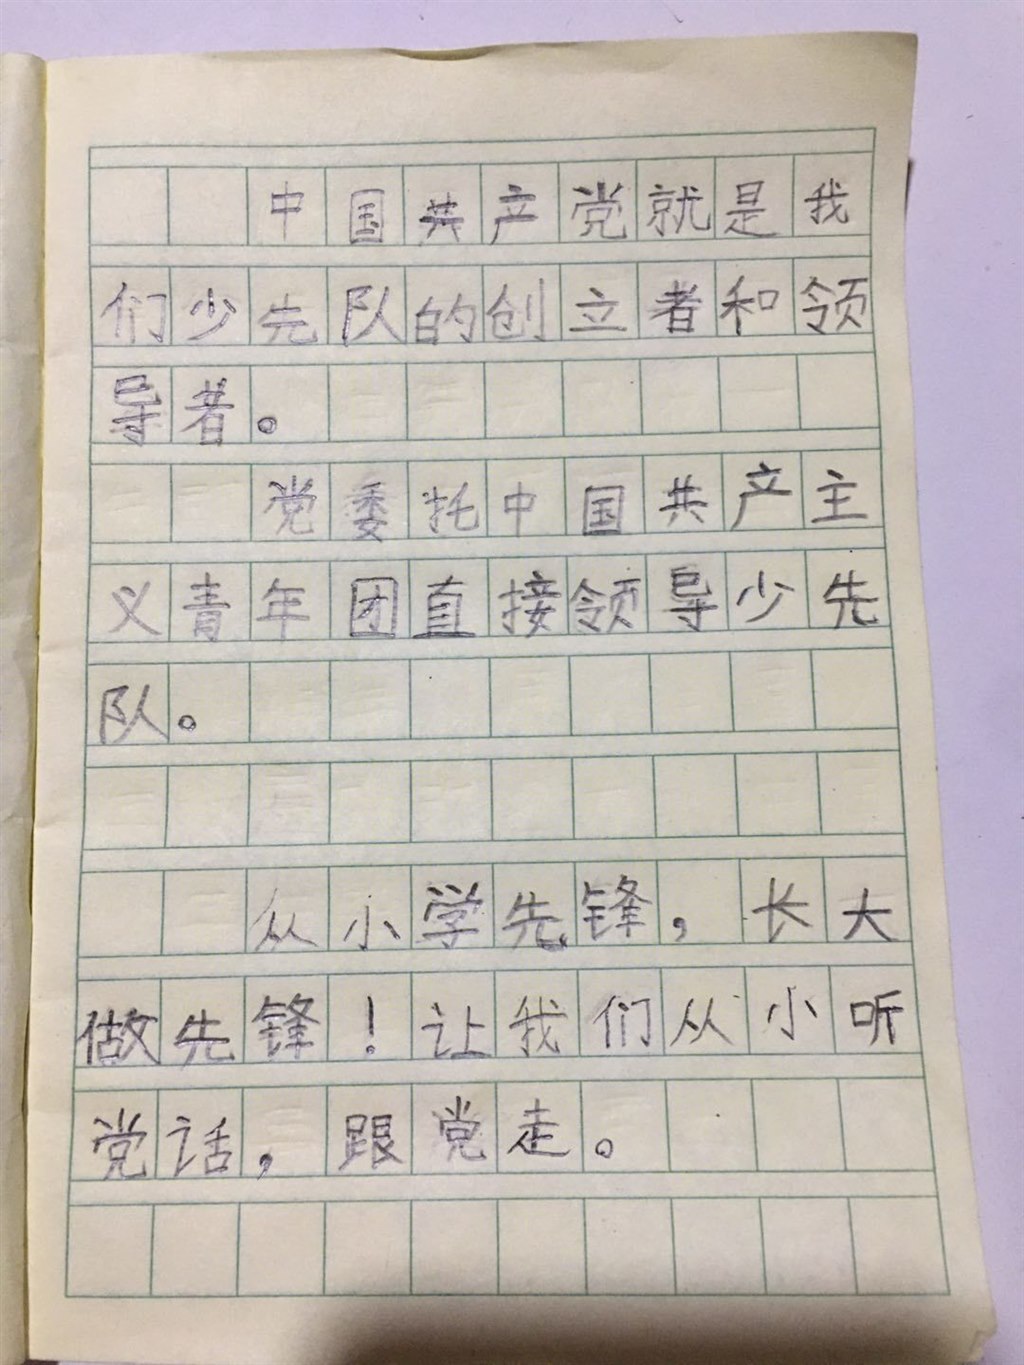 中国共产党就是我
们少先队的创立者和领
导者。
党委托中国共产主
义青年团直接领导少先
队。
从小学先锋，长大
做先锋！让我们从小听
党话，跟党走。